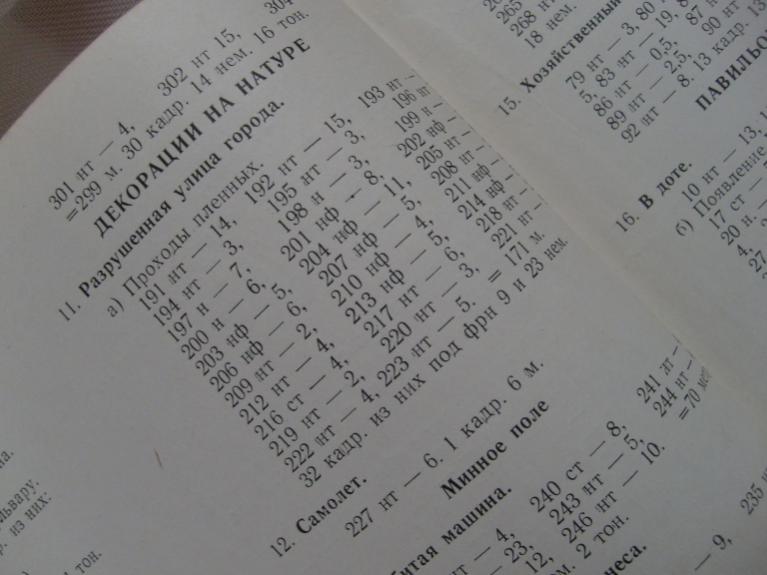 301 нт — 4, 302 нт 15, 304
=299 м. 30 кадр. 14 нем. 16 тон.
ДЕКОРАЦИИ НА НАТУРЕ
11. Разрушенная улица города.
а) Проходы пленных.
191 нт — 14, 192 нт — 15, 193 нт —
194 нт — 3, 195 нт — 3, 196 нт
197 н — 7, 198 н — 3, 199 н —
200 н — 6, 201 нф — 8, 202 нф —
203 нф — 5, 204 нф — 11, 205 нт —
206 нф — 6, 207 нф — 5, 208 нт —
209 нт — 2, 210 нф — 4, 211 нф —
212 нт — 4, 213 нф — 5, 214 нф —
216 ст — 4, 217 нт — 6, 218 нт —
219 нт — 2, 220 нт — 3, 221 нт —
222 нт — 4, 223 нт — 5. = 171 м.
32 кадр. из них под фрн 9 и 23 нем.
12. Самолет.
227 нт — 6. 1 кадр. 6 м.
Минное поле
битая машина.
— 4, 240 ст — 8, 241 нт —
— 23, 243 нт — 5, 244 нт —
12, 246 нт — 10. =70 мет
м. 2 тон.
неса.
— 9, 235
на.
львару.
р. из них:
1 тон.
265
268 н
18 нем.
15. Хозяйственный
79 нт — 3, 80
5, 83 нт — 19, 8
86 нт — 0,5, 87 н
89 нт — 2,5, 90 нт
92 нт — 8. 13 кадр. 13
ПАВИЛЬОН
16. В доте.
10 нт — 13, 1
б) Появление
17 ст —
20 н.
4,
27
22